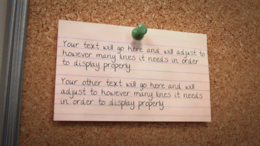 Your text will go here and will adjust to
however many lines it needs in order
to display properly.
Your other text will go here and will
adjust to however many lines it needs
in order to display properly.